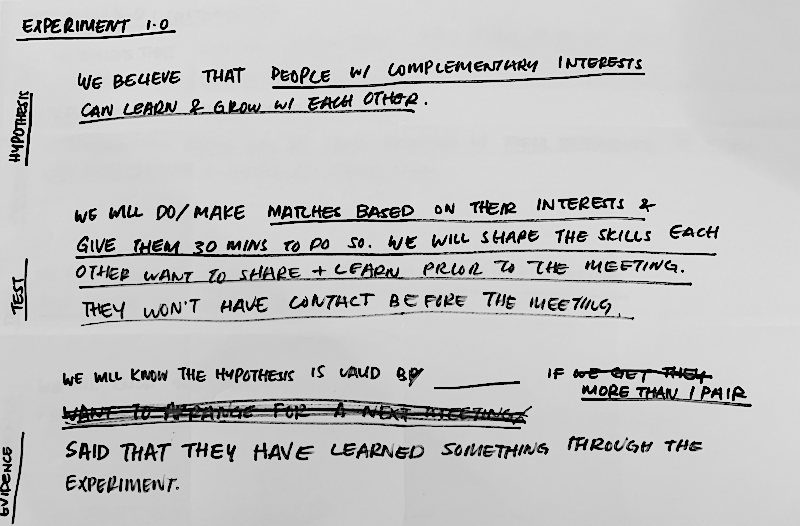 EXPERIMENT 1.0
HYPOTHESIS
WE BELIEVE THAT PEOPLE W/ COMPLEMENTARY INTERESTS
CAN LEARN & GROW W/ EACH OTHER.
TEST
WE WILL DO/MAKE MATCHES BASED ON THEIR INTERESTS &
GIVE THEM 30 MINS TO DO SO. WE WILL SHAPE THE SKILLS EACH
OTHER WANT TO SHARE + LEARN PRIOR TO THE MEETING.
THEY WON'T HAVE CONTACT BEFORE THE MEETING.
EVIDENCE
WE WILL KNOW THE HYPOTHESIS IS VALID BY ______ IF WE GET THEY
MORE THAN 1 PAIR
WANT TO ARRANGE FOR A NEXT MEETING
SAID THAT THEY HAVE LEARNED SOMETHING THROUGH THE
EXPERIMENT.